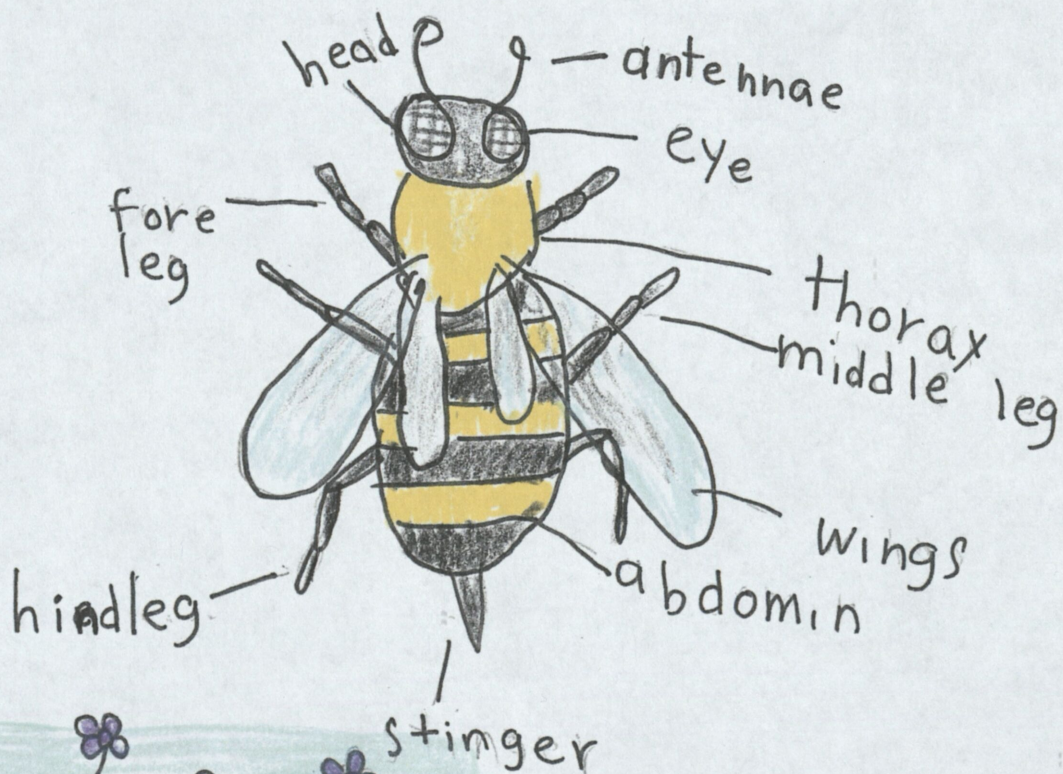 head
antennae
eye
fore
leg
thorax
middle leg
wings
abdomin
hindleg
stinger